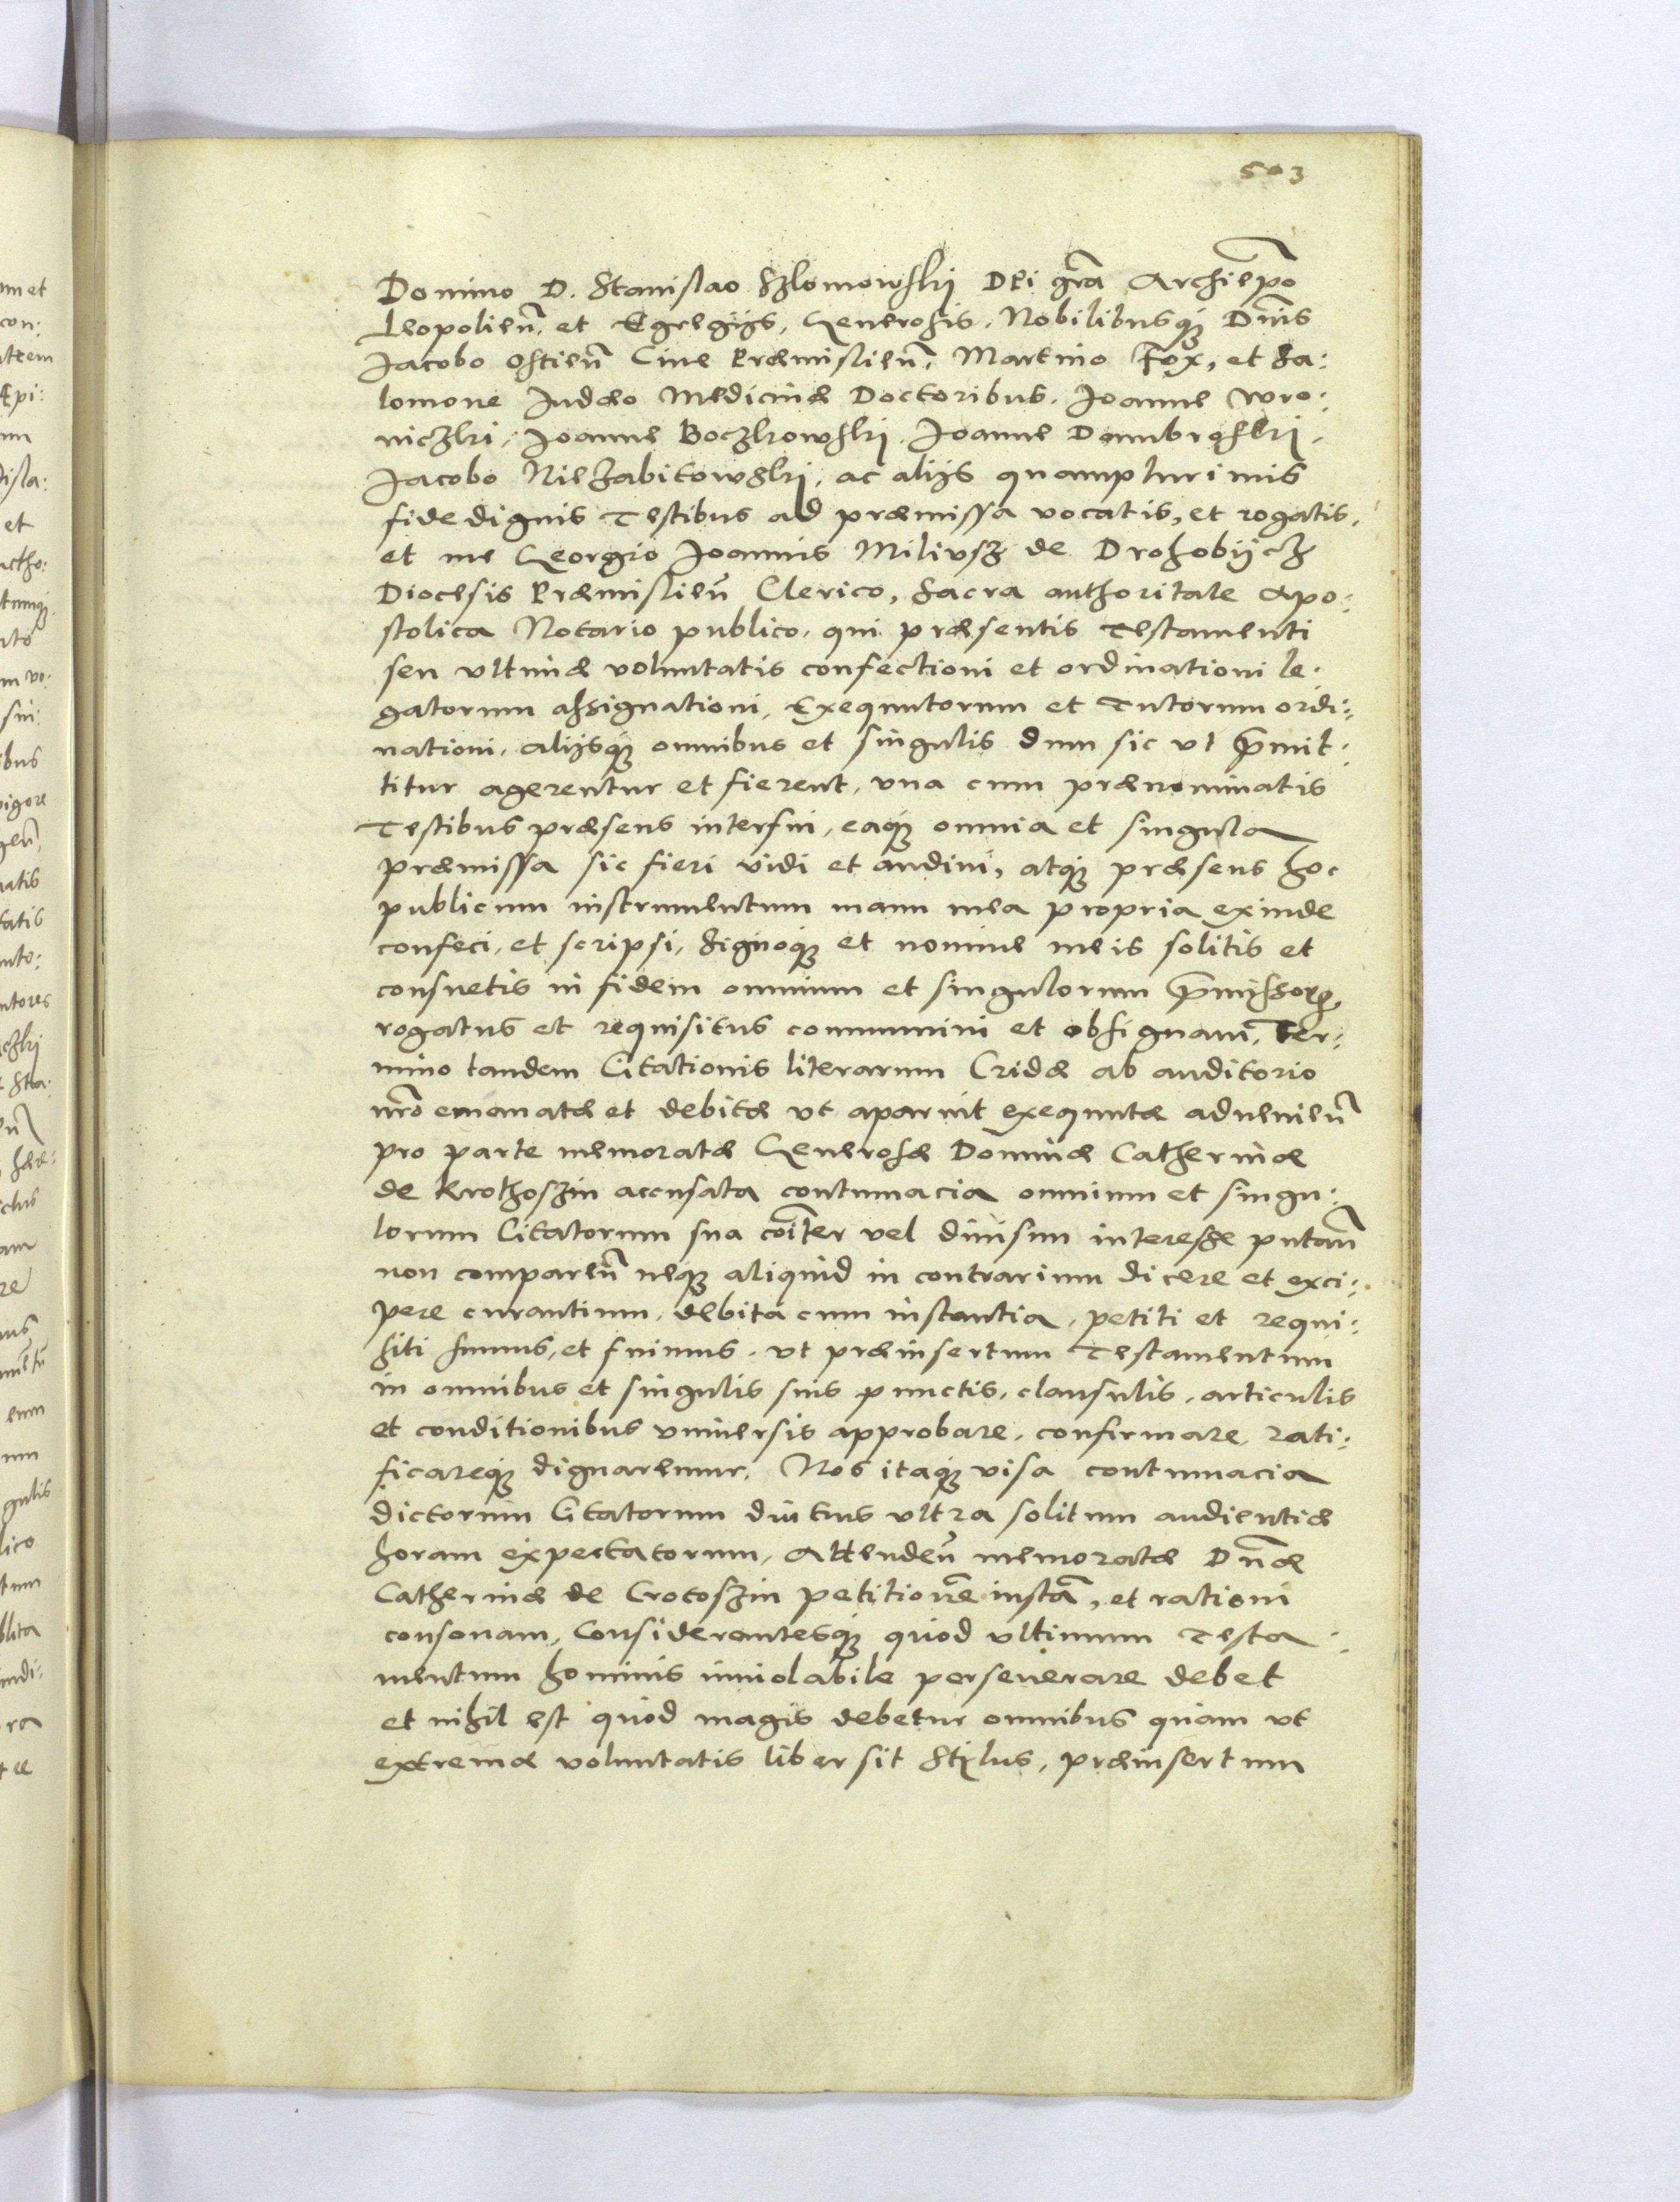 503
Domino D. Stanislao Szlomowskij DEi gra Archiepo
Leopolien. et Egregijs, Generosis, Nobilibusq Dnis
Jacobo Ostien Ciue Præmislien, Martino Fox, et Sa:
lomone Judæo Medicinæ Doctoribus. Joanne Wro:
niczki, Joanne Boczkowskij. Joanne Dambroskij.
Jacobo Niezabitowskij, ac alijs quamplurimis
fide dignis Testibus ad præmissa vocatis, et rogatis.
et me Georgio Joannis Miliusz de Drohobijcz
Diocesis Præmislien Clerico, Sacra authoritate Apo:
stolica Notario publico, qui præsentis Testamenti
seu vltimæ voluntatis confectioni et ordinationi le:
gatorum assignationi, Exequutorum et Tutorum ordi:
nationi, alijsq omnibus et singulis dum sic vt pmit:
titur agerentur et fierent, vna cum prænominatis
Testibus præsens interfui, eaq omnia et singula
præmissa sic fieri vidi et audiui, atq præsens hoc
publicum instrumentum manu mea propria exinde
confeci, et scripsi, signoq et nomine meis solitis et
consuetis in fidem omnium et singulorum pmissorum
rogatus et requisitus communini et obsignaui. Ter:
mino tandem Citationis literarum Cridæ ab auditorio
nro emanatæ et debitæ vt aparuit exequutæ adueniен
pro parte memoratæ Generosæ Dominæ Catherinæ
de Krothoszin accusata contumacia omnium et singu:
lorum Citatorum sua coiter vel diuisim interesse putan
non comparen neq aliquid in contrarium dicere et exci:
pere curantium, debita cum instantia, petiti et requi:
siti sumus, et fuimus. vt præinsertum Testamentum
in omnibus et singulis suis punctis, clausulis, articulis
et conditionibus vniuersis approbare, confirmare, rati:
ficareq dignaremur. Nos itaq visa contumacia
dictorum Citatorum diutius vltra solitum audientiæ
horam expectatorum, Attenden memoratæ Dnæ
Catherinæ de Crotoszin petitione iustam, et rationi
consonam, Considerantesq quod vltimum Testa:
mentum hominis inuiolabile perseuerare debet
et nihil est quod magis debetur omnibus quam vt
extremæ voluntatis liber sit Stylus, præinsertum